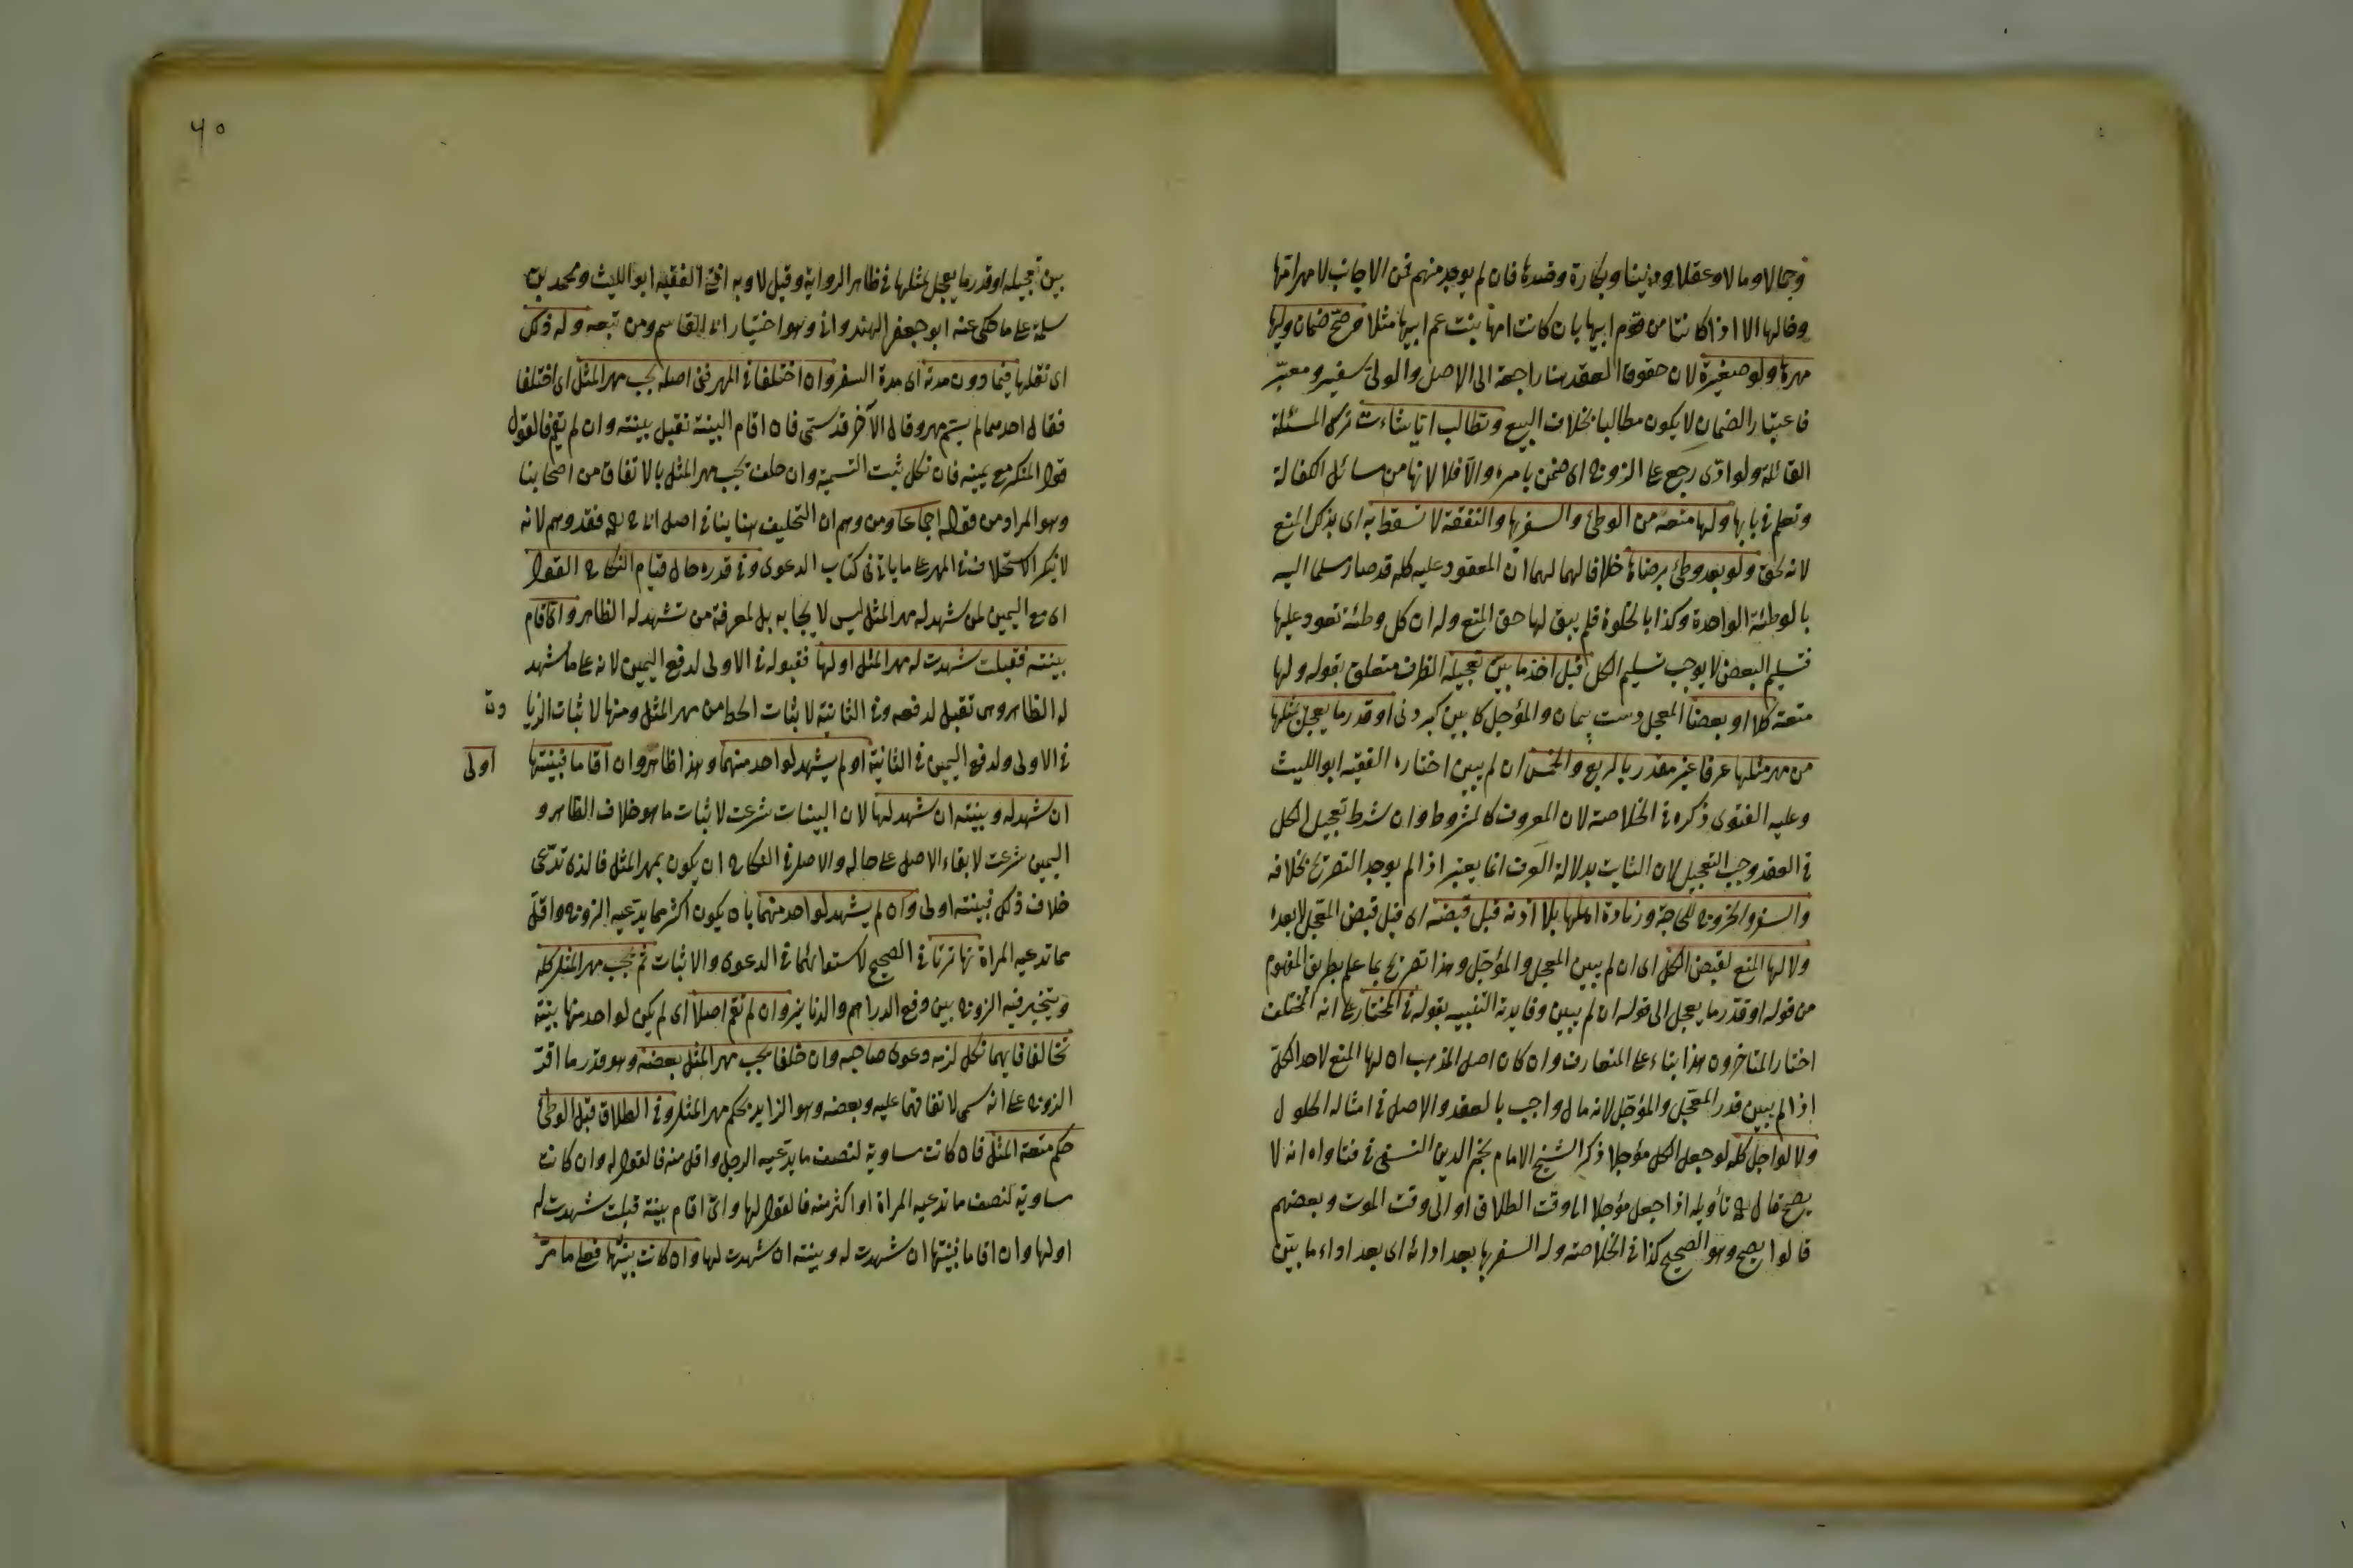 وجمالا ومالا وعقلا ودينا وبكارة وضدها فان لم يوجد منهم فمن الاجانب لا مهر امها
وخالها الا اذا كانتا من قوم ابيها بان كانت امها بنت عم ابيها مثلا صح ضمان وليها
مهرها ولو صغيرة لان حقوق العقد هنا راجعة الى الاصل والولي سفير ومعبر
فاعتبار الضمان لا يكون مطالبا بخلاف البيع وتطالب ايا شاءت هذه المسئلة
القائلة ولو ادى رجع على الزوج اى ضمن بامره والا فلا لانها من سائل الكفالة
وتعلم في بابها ولها منعه من الوطئ والسفر بها والنفقة لا تسقط به اى بذلك المنع
لانه بحق ولو بعد وطئ برضاها خلافا لهما لهما ان المعقود عليه كله قد صار مسلما اليه
بالوطئة الواحدة وكذا بالخلوة فلم يبق لها حق المنع وله ان كل وطئة تعود عليها
فتسليم البعض لا يوجب تسليم الكل قبل اخذ ما بين تعجيله الظرف متعلق بقوله ولها
منعه كلا او بعضا المعجل دست پيمان والمؤجل كابين كردنى او قدر ما يعجل لمثلها
من مهر مثلها عرفا غير مقدر بالربع والخمس ان لم يبين اختاره الفقيه ابو الليث
وعليه الفتوى ذكره في الخلاصة لان المعروف كالمشروط وان شرط تعجيل الكل
في العقد وجب التعجيل لان الثابت بدلالة العرف انما يعتبر اذا لم يوجد التصريح بخلافه
والسفر والخروج للحاجة وزيادة اهلها بلا اذنه قبل قبضه اى قبل قبض المعجل لا بعده
ولا لها المنع لقبض الكل اى ان لم يبين المعجل والمؤجل وهذا تصريح بما علم بطريق المفهوم
من قوله او قدر ما يعجل الى قوله ان لم يبين وفايدة التنبيه بقوله في المختار على انه المختلف
اختار المتاخرون هذا بناء على المتعارف وان كان اصل المذهب ان لها المنع لاخذ الكل
اذا لم يبين قدر المعجل والمؤجل لانه مال واجب بالعقد والاصل في امثاله الحلول
ولا لو اجل كله لو جعل الكل مؤجلا ذكر الشيخ الامام نجم الدين النسفى في فتاواه انه لا
يصح قال تأويله اذا جعل مؤجلا الى وقت الطلاق او الى وقت الموت وبعضهم
قالوا يصح وهو الصحيح كذا في الخلاصة وله السفر بها بعد ادائه اى بعد اداء ما بين
٦٥
بين تعجيله او قدر ما يعجل لمثلها في ظاهر الرواية وقيل لا وبه افتى الفقيه ابو الليث ومحمد بن
سلمة على ما حكى عنه ابو جعفر الهندوانى وهو اختيار ابى القاسم ومن تبعه وله ذلك
اى نقلها فيما دون مدته اى مدة السفر وان اختلفا في المهر ففى اصله يجب مهر المثل اى اختلفا
فقال احدهما لم يسم مهر وقال الآخر قد سمى فان اقام البينة تقبل بينته وان لم يقم فالقول
قول المنكر مع يمينه فان نكل ثبت التسمية وان حلف يجب مهر المثل بالاتفاق من اصحابنا
وهو المراد من قوله اجماعا ومن وهم ان التحليف هنا ينافى اصل ابى ح فقد وهم لانه
لا ينكر الاستحلاف في المهر على ما ياتى فى كتاب الدعوى وفى قدره حال قيام النكاح القول
اى مع اليمين لمن شهد له مهر المثل ليس لايجابه بل لمعرفة من تشهد له الظاهر واى اقام
بينته فقبلت شهدت له مهر المثل او لها فقبوله في الاولى لدفع اليمين لانه على ما شهد
له الظاهر وهى تقبل لدفعه وفى الثانية لاثبات الحط من مهر المثل ومنها لاثبات الزيا دة
في الاولى ولدفع اليمين في الثانية او لم يشهد لواحد منهما وهذا ظاهر وان اقاما فبينتها اولى
ان شهد له وبينته ان شهد لها لان البينات شرعت لاثبات ما هو خلاف الظاهر و
اليمين شرعت لابقاء الاصل على حاله والاصل في النكاح ان يكون بمهر المثل فالذى تدعى
خلاف ذلك فبينته اولى وان لم يشهد لواحد منهما بان يكون اكثر مما يدعيه الزوج واقل
مما تدعيه المراة تهاترتا في الصحيح لاستوائهما في الدعوى والاثبات ثم يجب مهر المثل كله
ويتخير فيه الزوج بين دفع الدراهم والدنانير وان لم تقم اصلا اى لم يكن لواحد منهما بينة
تحالفا فايهما نكل لزمه دعوى صاحبه وان حلفا يجب مهر المثل بعضه وهو قدر ما اقر
الزوج على انه سمى لاتفاقهما عليه وبعضه وهو الزايد بحكم مهر المثل وفى الطلاق قبل الوطئ
حكم متعة المثل فان كانت مساوية لنصف ما يدعيه الرجل او اقل منه فالقول له وان كانت
مساوية لنصف ما تدعيه المراة او اكثر منه فالقول لها واى اقام بينة قبلت شهدت له
او لها وان اقاما فبينتها ان شهدت له وبينته ان شهدت لها وان كانت بينهما فعلى ما مر